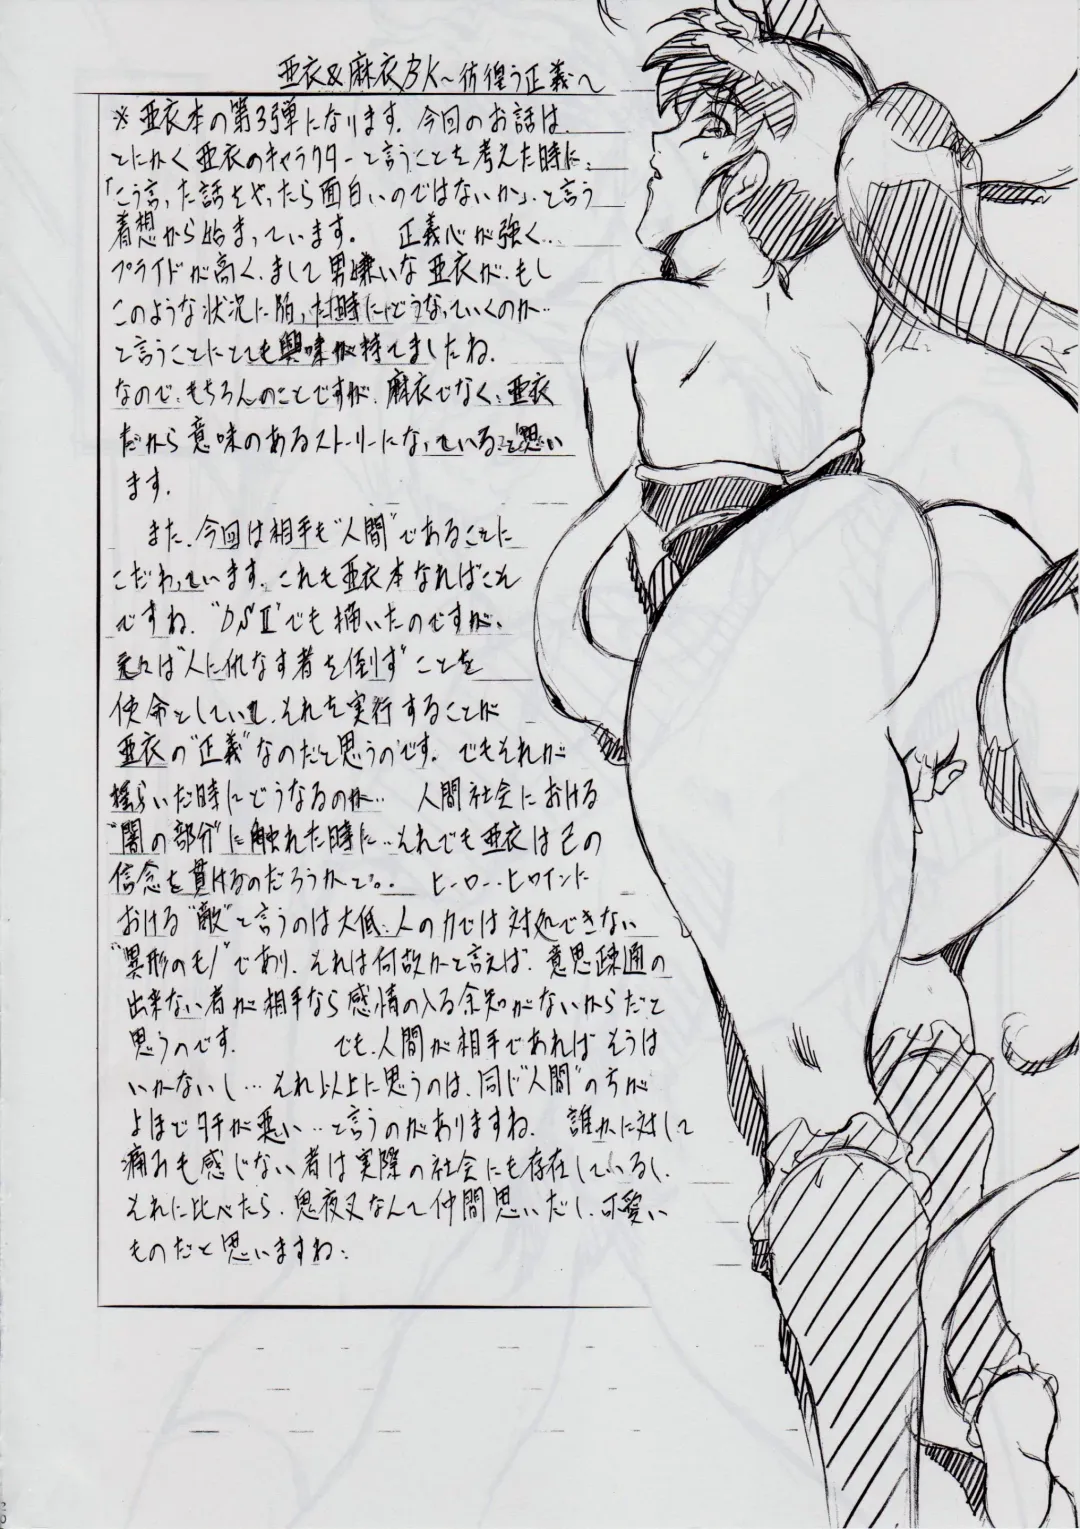 亜衣&麻衣BK~彷徨う正義へ
※亜衣本の第3弾になります。今回のお話は、
とにかく亜衣のキャラクターと言うことを考えた時に、
「こう言った話をやったら面白いのではないか」と言う
着想から始まっています。 正義心が強く…
プライドが高く、まして男嫌いな亜衣が、もし
このような状況に陥った時に、どうなっていくのか…
と言うことにとても興味が持てましたね。
なので、もちろんのことですが、麻衣でなく、亜衣
だから意味のあるストーリーになっていると思い
ます。
また、今回は相手も“人間”であることに
こだわっています。これも亜衣本なればこそ
ですね。“DSⅡ”でも描いたのですが、
元々は“人に仇なす者を倒す”ことを
使命としていて、それを実行することが
亜衣の“正義”なのだと思うのです。でもそれが
揺らいだ時にどうなるのか… 人間社会における
“闇の部分”に触れた時に…それでも亜衣は己の
信念を貫けるのだろうかと。 ヒーロー・ヒロインに
おける“敵”と言うのは大低、人の力では対処できない
“異形のモノ”であり、それは何故かと言えば、意思疎通の
出来ない者が相手なら感情の入る余知がないからだと
思うのです。 でも、人間が相手であればそうは
いかないし…それ以上に思うのは、同じ“人間”の方が
よほどタチが悪い…と言うのがありますね。 誰かに対して
痛みも感じない者は実際の社会にも存在しているし、
それに比べたら、鬼夜叉なんて仲間思いだし、可愛い
ものだと思いますね。